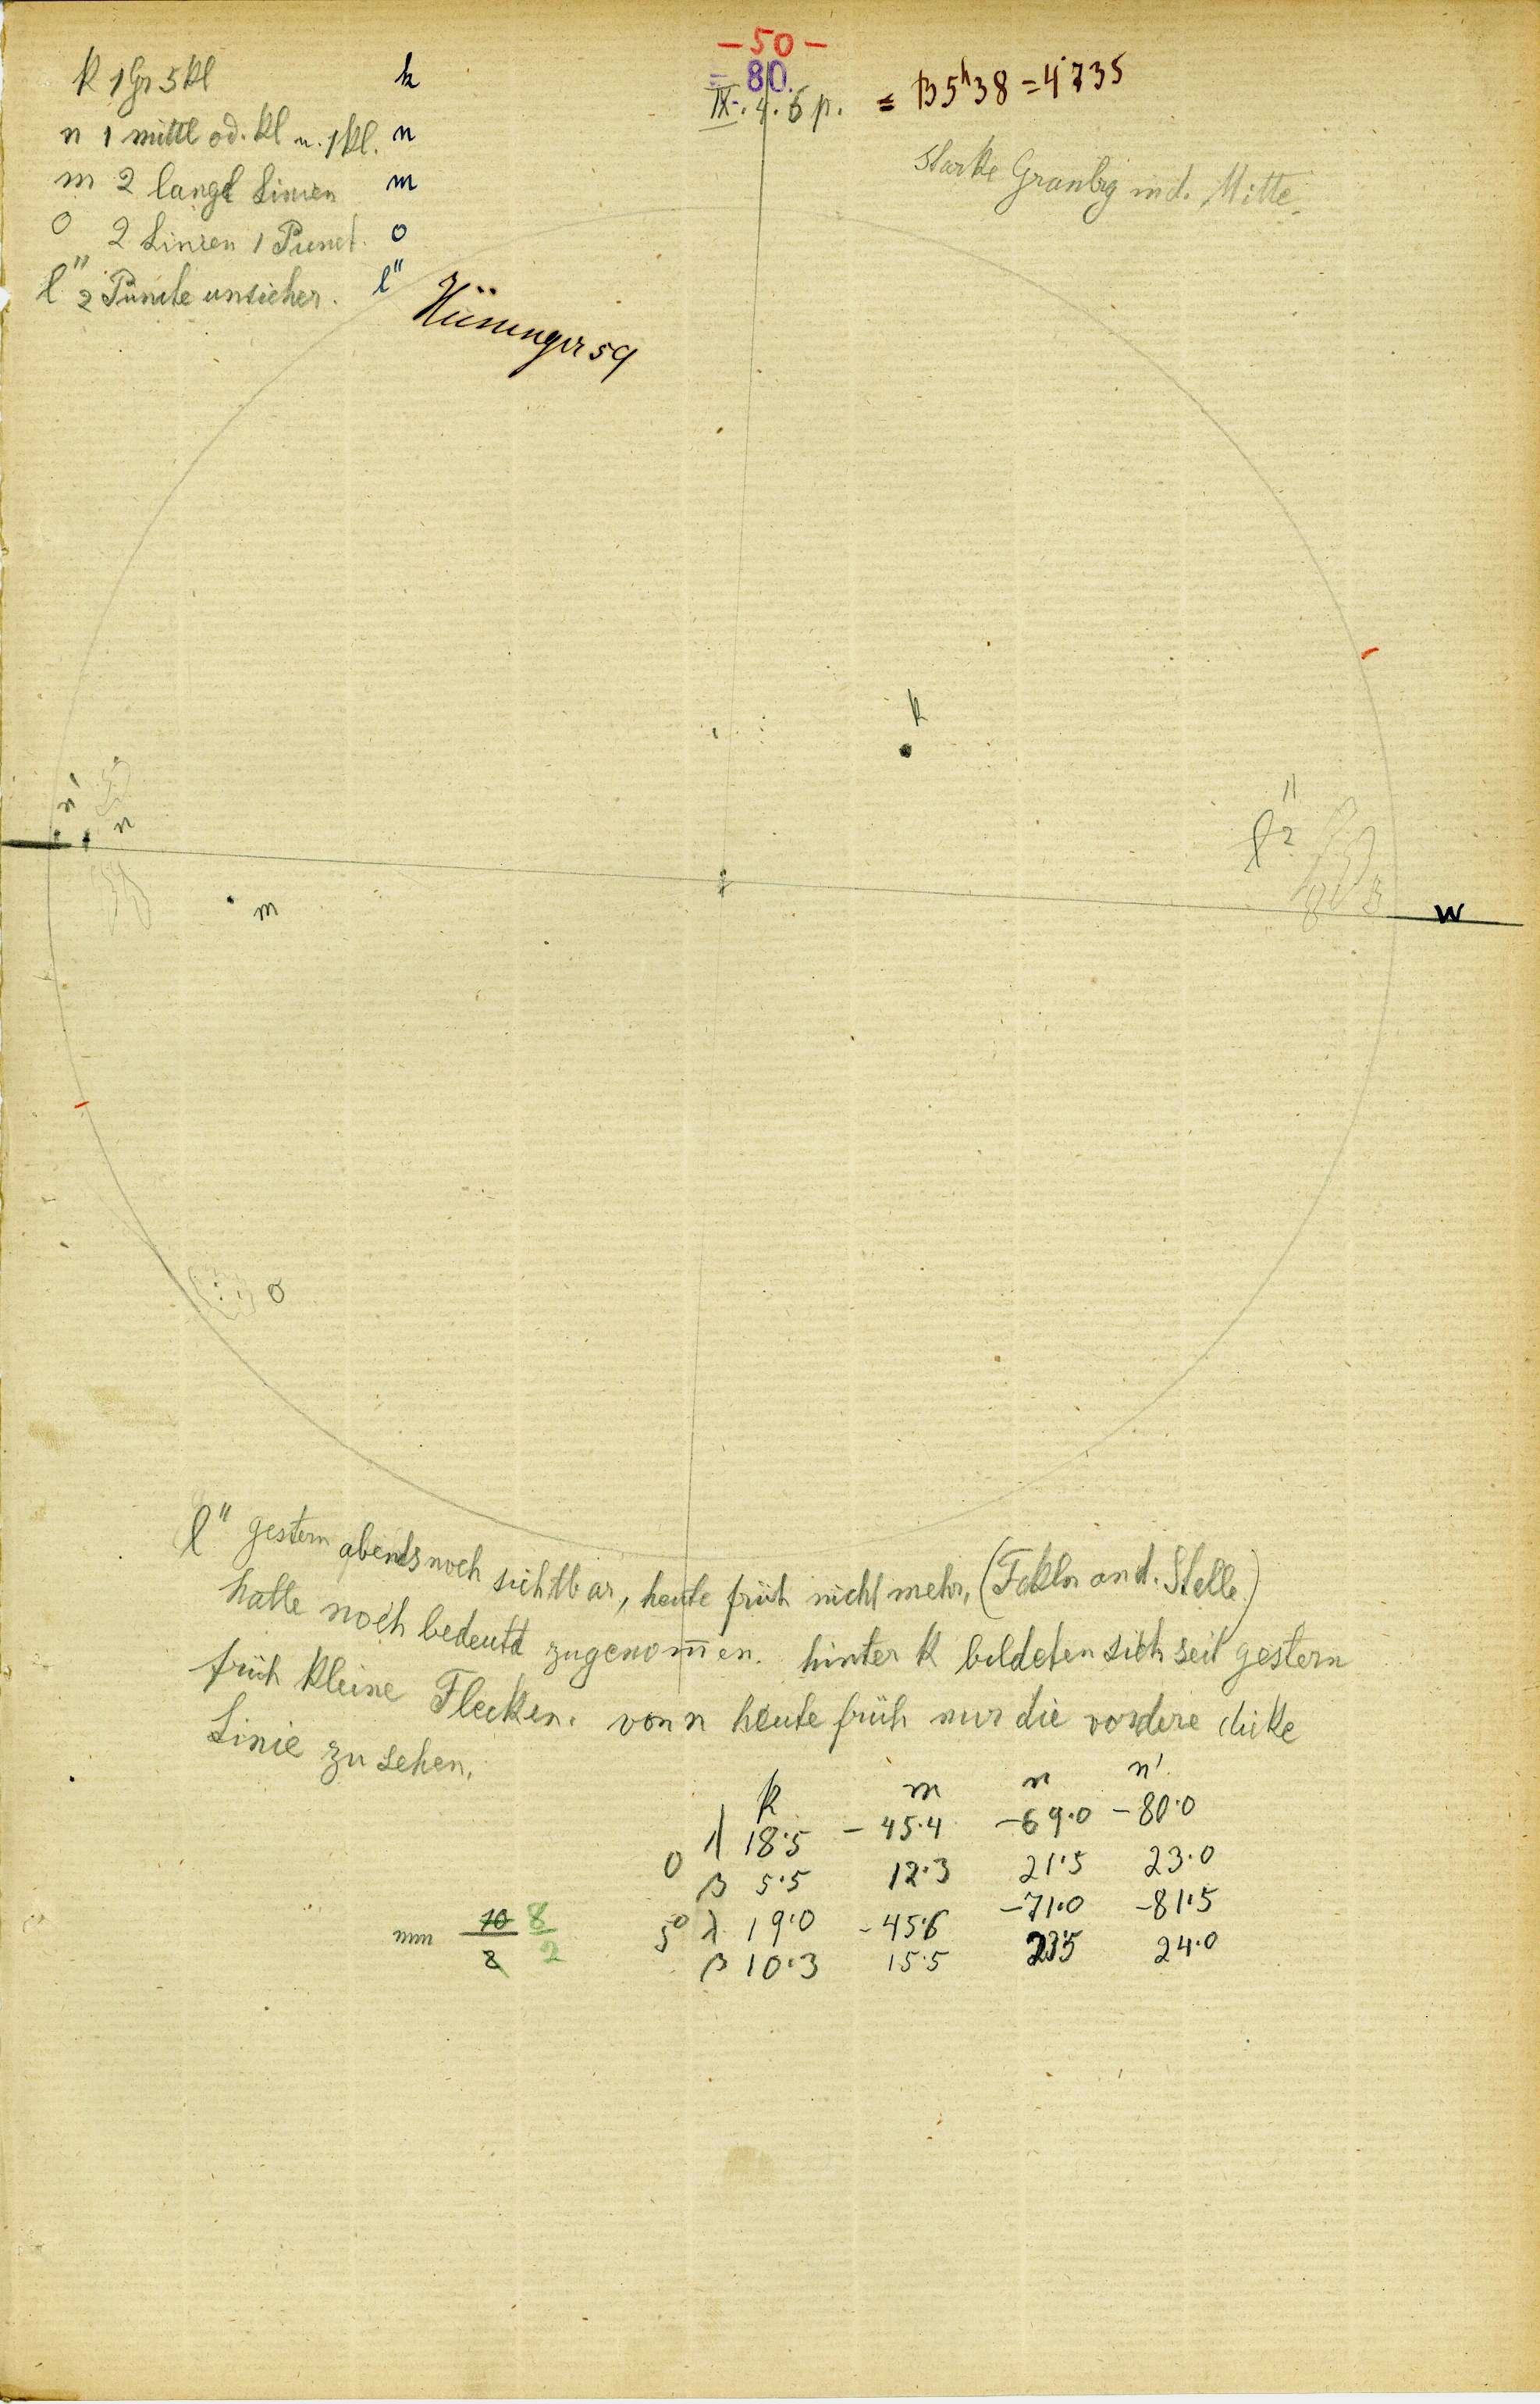 - 50 -
= 80.
IX. 4. 5 p. = B 5h38 = 4.735
k 1 Gr 5 kl k
n 1 mittl od. kl u. 1 kl. n
m 2 lange Linien m
o 2 Linien 1 Punct. o
l" 2 Puncte unsicher. l"
Starke in d. Mitte.
59
k
n'
n
m
l"
2
W
o
l" gestern abends noch sichtbar, heute früh nicht mehr, (Fakln an d. Stelle.)
hatte noch bedeutd zugenom̅en. hinter k bildeten sich seit gestern
früh kleine Flecken. von n heute früh nur die vordere dicke
Linie zu sehen.
k m n n'
0 λ 18.5 - 45.4 - 69.0 - 80.0
β 5.5 12.3 21.5 23.0
5° λ 19.0 - 45.6 - 71.0 - 81.5
β 10.3 15.5 23.5 24.0
mm 10/2 8/2